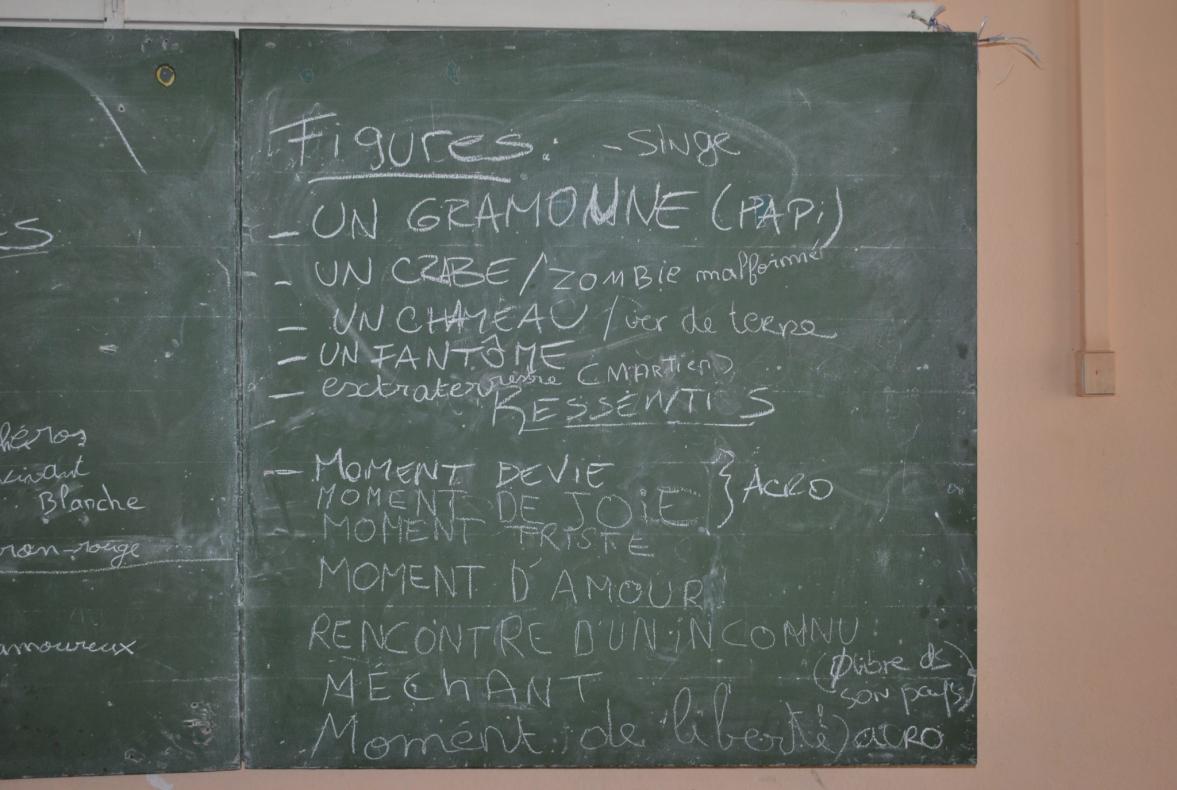 Figures: - singe
- UN GRAMONNE (PAPi)
- UN CRABE / ZOMBiE malformé
- UN CHAMEAU / ver de terre
- UN FANTÔME
- extraterrestre (MARTien)
RESSENTIS
- MOMENT DE VIE } ACRO
MOMENT DE JOiE
MOMENT TRISTE
MOMENT D'AMOUR
RENCONTRE D'UN iNCONNU
MÉChANT
(libre ds
son pays)
Moment de liberté) acro
S
héros
Blanche
ron-rouge
amoureux